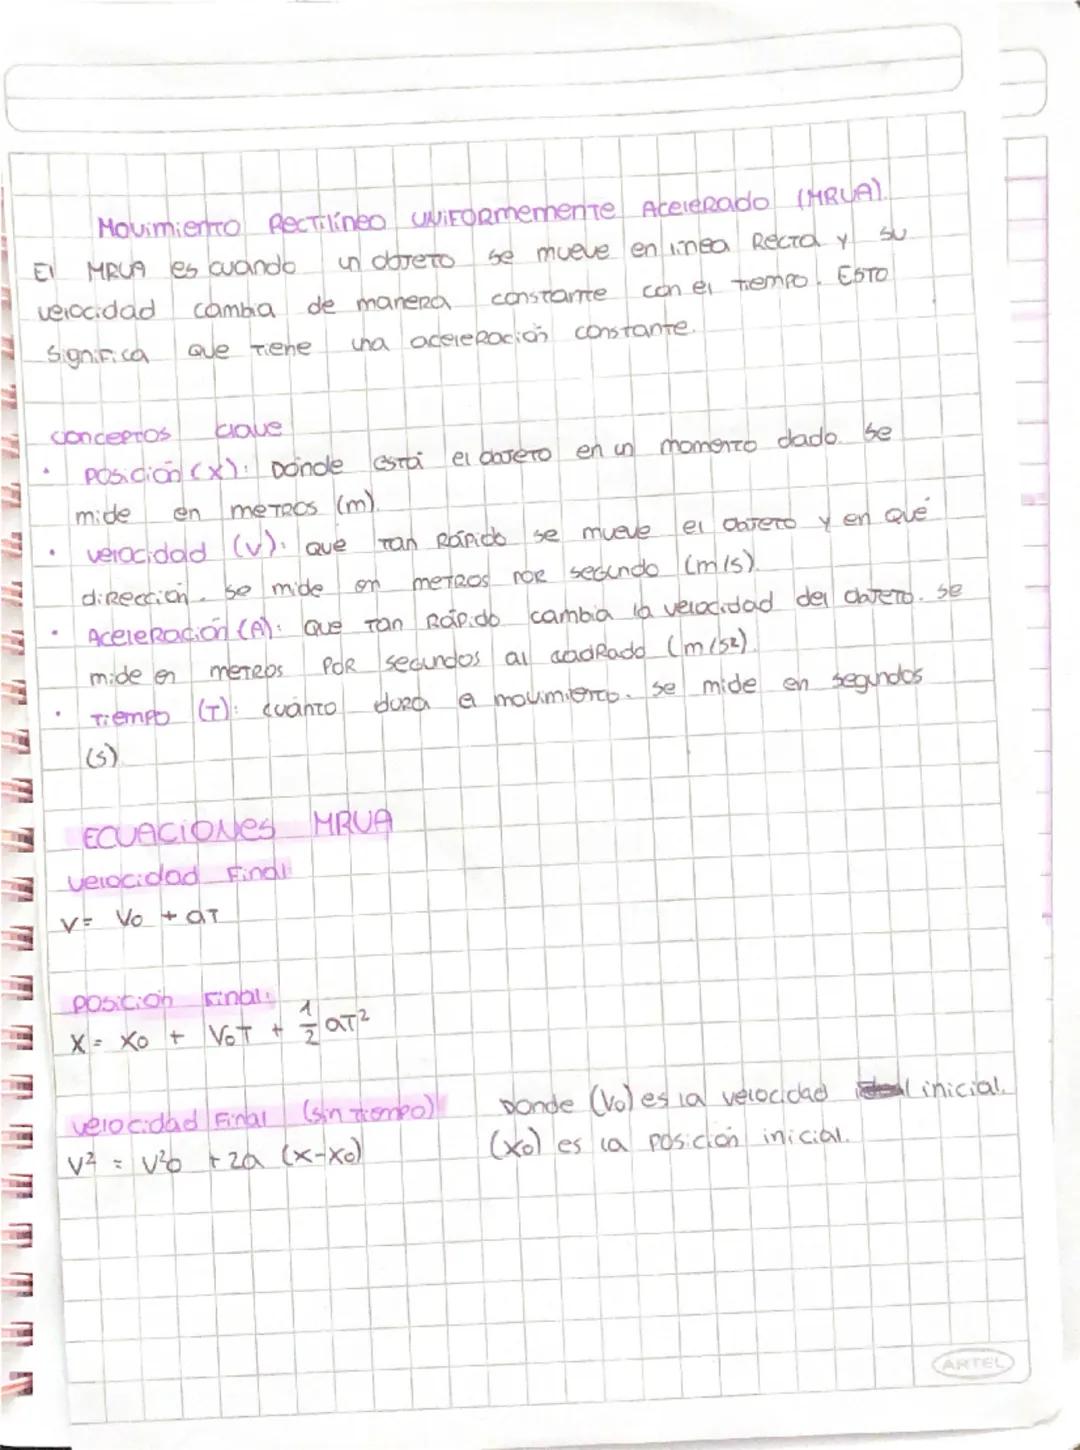 Movimiento Rectilíneo Uniformemente Acelerado (MRUA).
El MRUA es cuando un objeto se mueve en línea Recta y su
velocidad cambia de manera constante con el tiempo. Esto
significa que tiene una aceleración constante.
conceptos clave
• Posición (x): Dónde está el objeto en un momento dado. se
mide en metros (m).
• velocidad (v): que tan Rápido se mueve el objeto y en qué
dirección. se mide en metros por segundo (m/s).
• Aceleración (A): que tan Rápido cambia la velocidad del objeto. se
mide en metros por segundos al cuadrado (m/s2).
• Tiempo (T): cuánto dura el movimiento. se mide en segundos
(s)
ECUACIONES MRUA
velocidad Final:
V= Vo + aT
posición Final:
X = Xo + VoT + 1/2 aT²
velocidad Final (sin tiempo) Donde (Vo) es la velocidad inicial.
V² = V²o + 2a (x-xo) (xo) es la posición inicial.
ARTEL